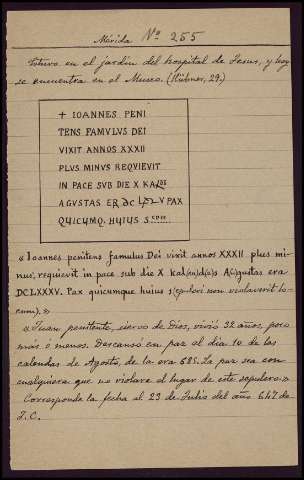 Mérida Nº 255
Estuvo en el jardín del hospital de Jesus, y hoy
se encuentra en el Museo. (Hübner, 29.)
+ IOANNES PENI
TENS FAMVLVS DEI
VIXIT ANNOS XXXII
PLVS MINVS REQVIEVIT
IN PACE SVB DIE X KALDS
AGVSTAS ER DC V PAX
QVICVMQ. HVIVS
« Ioannes penitens famulus Dei vixit annos XXXII plus mi-
nus, requievit in pace sub die X kal(en)d(a)s A(u)gustas era
DCLXXXV. Pax quicumque huius s(epulcri non violaverit lo-
cum). »
« Juan penitente, siervo de Dios, vivió 32 años, poco
más ó menos. Descansó en paz el día 10 de las
calendas de Agosto, de la era 685. La paz sea con
cualquiera que no violare el lugar de este sepulcro. »
Corresponde la fecha al 23 de Julio del año 647 de
J. C.